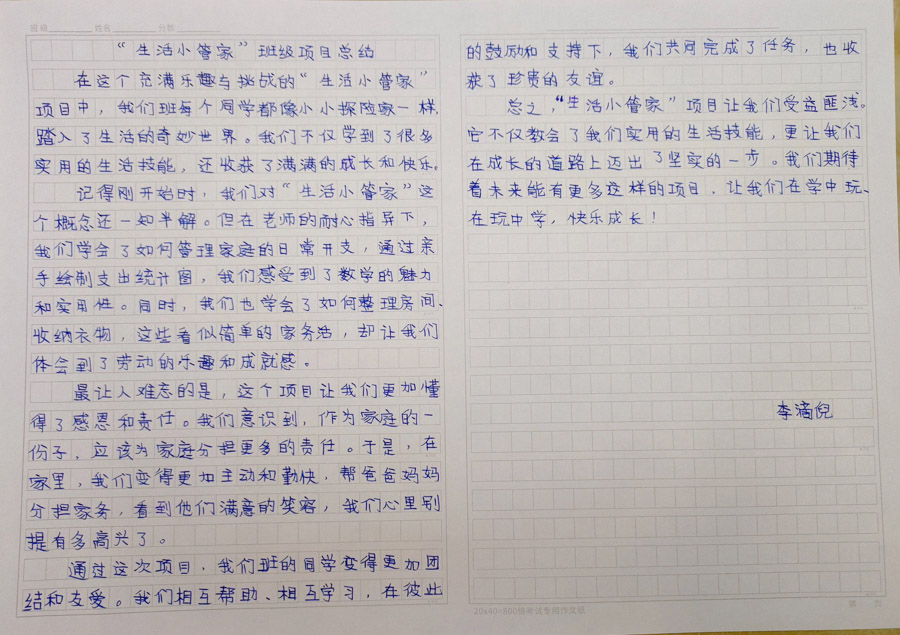 班级 姓名 分数
“生活小管家”班级项目总结
在这个充满乐趣与挑战的“生活小管家”
项目中，我们班每个同学都像小小探险家一样，
踏入了生活的奇妙世界。我们不仅学到了很多
实用的生活技能，还收获了满满的成长和快乐。
记得刚开始时，我们对“生活小管家”这
个概念还一知半解。但在老师的耐心指导下，
我们学会了如何管理家庭的日常开支，通过亲
手绘制支出统计图，我们感受到了数学的魅力
和实用性。同时，我们也学会了如何整理房间、
收纳衣物，这些看似简单的家务活，却让我们
体会到了劳动的乐趣和成就感。
最让人难忘的是，这个项目让我们更加懂
得了感恩和责任。我们意识到，作为家庭的一
份子，应该为家庭分担更多的责任。于是，在
家里，我们变得更加主动和勤快，帮爸爸妈妈
分担家务，看到他们满意的笑容，我们心里别
提有多高兴了。
通过这次项目，我们班的同学变得更加团
结和友爱。我们相互帮助、相互学习，在彼此
的鼓励和支持下，我们共同完成了任务，也收
获了珍贵的友谊。
总之，“生活小管家”项目让我们受益匪浅。
它不仅教会了我们实用的生活技能，更让我们
在成长的道路上迈出了坚实的一步。我们期待
着未来能有更多这样的项目，让我们在学中玩、
在玩中学，快乐成长！
李滴倪
20x40=800格考试专用作文纸
第 页